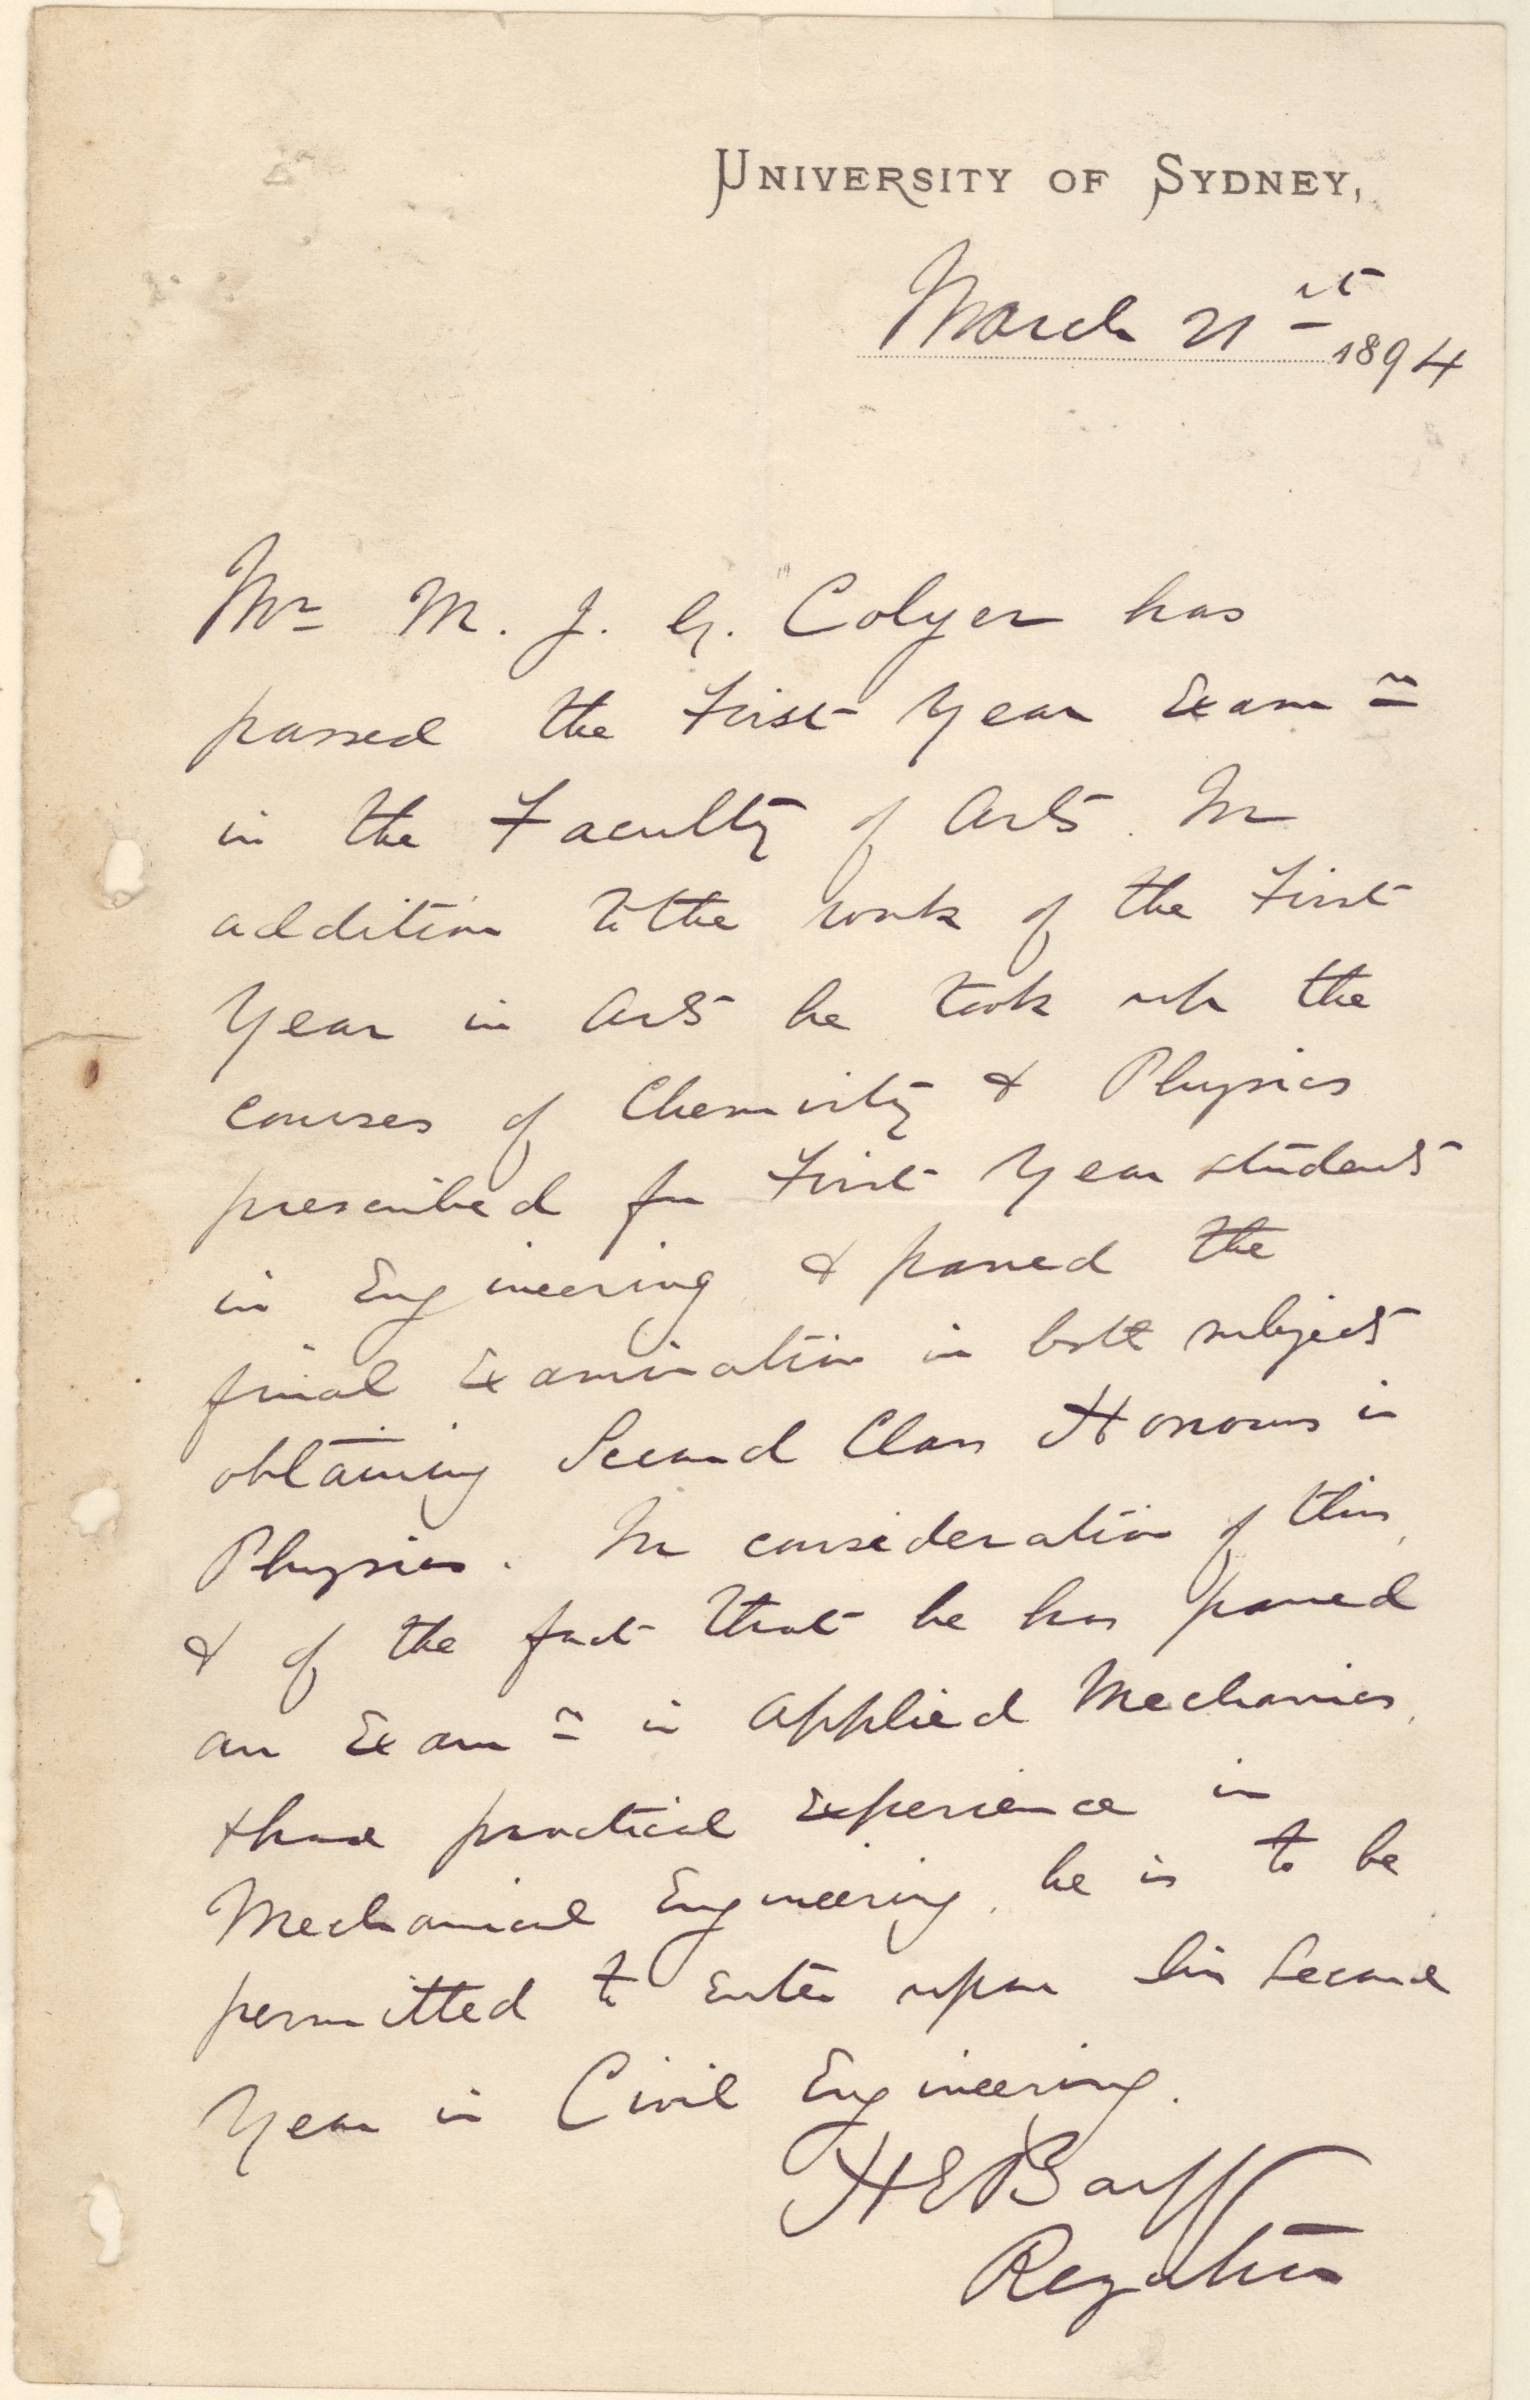 UNIVERSITY OF SYDNEY,
March 21st 1894
Mr M. J. G. Colyer has
passed the First Year Examn
in the Faculty of Arts. In
addition to the work of the First
Year in Arts he took up the
courses of Chemistry & Physics
prescribed for First Year students
in Engineering & passed the
final Examination in both subjects
obtaining Second Class Honours in
Physics. In consideration of this,
& of the fact that he has passed
an Examn in Applied Mechanics,
& had practical experience in
Mechanical Engineering, he is to be
permitted to enter upon his Second
Year in Civil Engineering.
H E Barff
Registrar